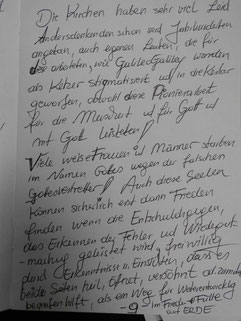 Die Kirchen haben sehr viel Leid
Andersdenkenden schon seit Jahrhunderten
angetan, auch eigenen Leuten, die für
sie arbeiteten, wie Galileo Galilei wurden
als Ketzer stigmatisiert u/ in die Kerker
geworfen, obwohl diese Pionierarbeit
für die Menschheit u/ für Gott u/
mit Gott leisteten!
Viele weise Frauen u/ Männer starben
im Namen Gottes wegen der falschen
Gottesvertreter! Auch diese Seelen
können sicherlich erst dann Frieden
finden wenn die Entschuldigungen,
das Erkennen der Fehler und Wiedergut
-machung geleistet wird, freiwillig
durch Erkenntnisse u. Einsichten, dass es
beide Seiten heilt, öffnet, versöhnt
beiden hilft, als ein Weg für
-9- im Frieden + Fülle
auf ERDE